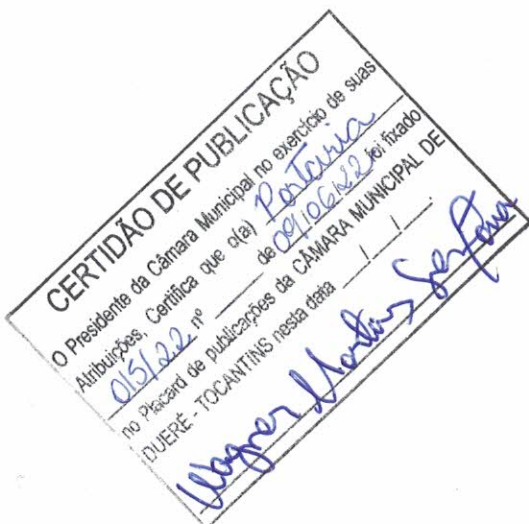 CERTIDÃO DE PUBLICAÇÃO
O Presidente da Câmara Municipal no exercício de suas
Atribuições, Certifica que o(a) Portaria
015/22 nº ____ de 09/06/22 foi fixado
no Placard de publicações da CÂMARA MUNICIPAL DE
DUERÉ - TOCANTINS nesta data __/__/__.
Wagner Martins